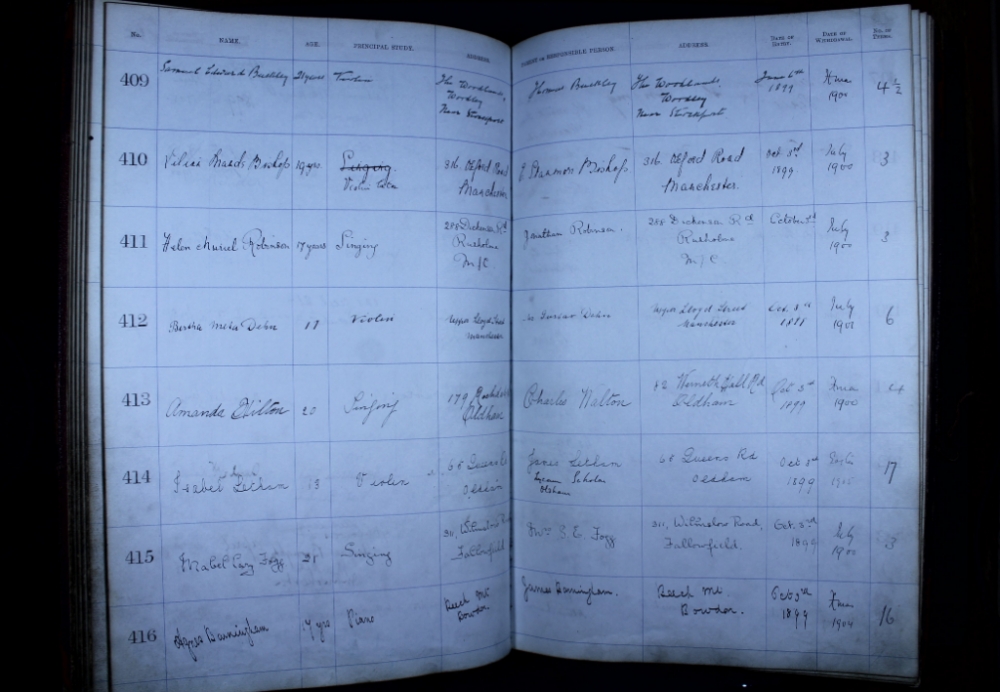 No. NAME. AGE. PRINCIPAL STUDY. ADDRESS. PARENT OR RESPONSIBLE PERSON. ADDRESS. DATE OF ENTRY. DATE OF WITHDRAWAL. NO. OF TERMS.
409 Samuel Edward Buckley 21 years Violin The Woodlands, Thomas Buckley The Woodlands June 6th Xmas 4 ½
Woodley Woodley 1899 1900
Near Stockport Near Stockport
410 Maude Bishop 19 yrs Singing 316 Oxford Road Bishop 316 Oxford Road Oct 3rd July 3
Violin Manchester Manchester. 1899 1900
411 Helen Muriel Robinson 17 years Singing 288 Dickenson Rd Jonathan Robinson. 288 Dickenson Rd October 3rd July 3
Rusholme Rusholme 1900
M/C M/C
412 Bertha Meta Violin Upper Lloyd Street Gustav Upper Lloyd Street Oct. July 6
Manchester Manchester
413 Amanda 20 Singing 179 Charles Walton 82 Werneth Hall Rd Oct 3rd Xmas 4
Oldham Oldham 1899 1900
414 Isabel Letham Violin 68 Queens Letham 68 Queens Rd Oct 3rd 17
Oldham Oldham 1899
Oldham
415 Mabel Fogg Singing 311, Wilmslow Rd Mrs S. E. Fogg 311, Wilmslow Road, Oct. 3rd July 3
Fallowfield Fallowfield. 1899 1900
416 Agnes Barningham 17 yrs Piano Beech Mt. James Barningham. Beech Mt. Oct 3rd Xmas 16
Bowdon Bowdon. 1899 1904